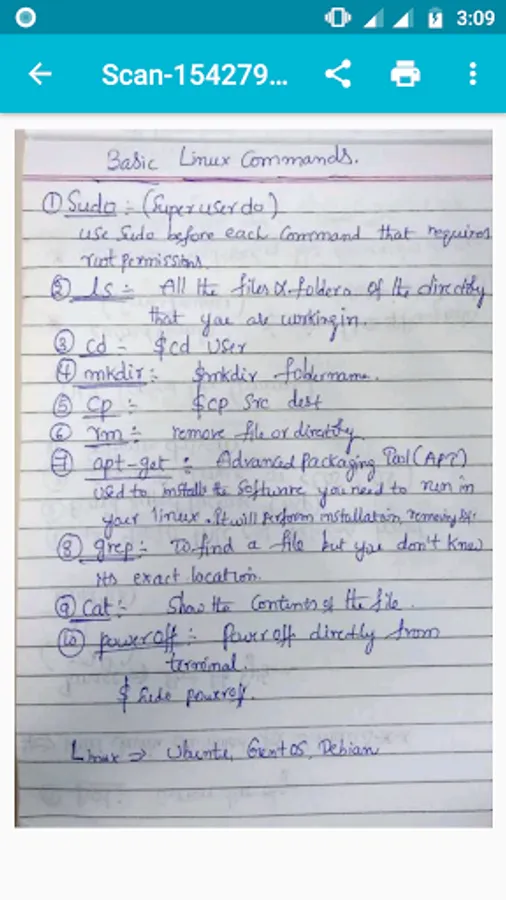 3:09
Scan-154279...
Basic Linux Commands.
① Sudo :- (Superuserdo)
use Sudo before each Command that requires
root permissions.
② ls :- All the files & folders of the directly
that you are working in.
③ cd :- $cd user
④ mkdir :- $mkdir foldername.
⑤ cp :- $cp Src dest
⑥ rm :- remove file or directly.
⑦ apt-get :- Advanced Packaging Tool (APT)
used to installs the Software you need to run in
your linux. It will perform installation, removing
⑧ grep :- To find a file but you don't know
its exact location.
⑨ Cat :- Show the Contents of the file.
⑩ poweroff :- Power off directly from
terminal.
$ Sudo poweroff.
Linux => Ubuntu, CentOS, Debian